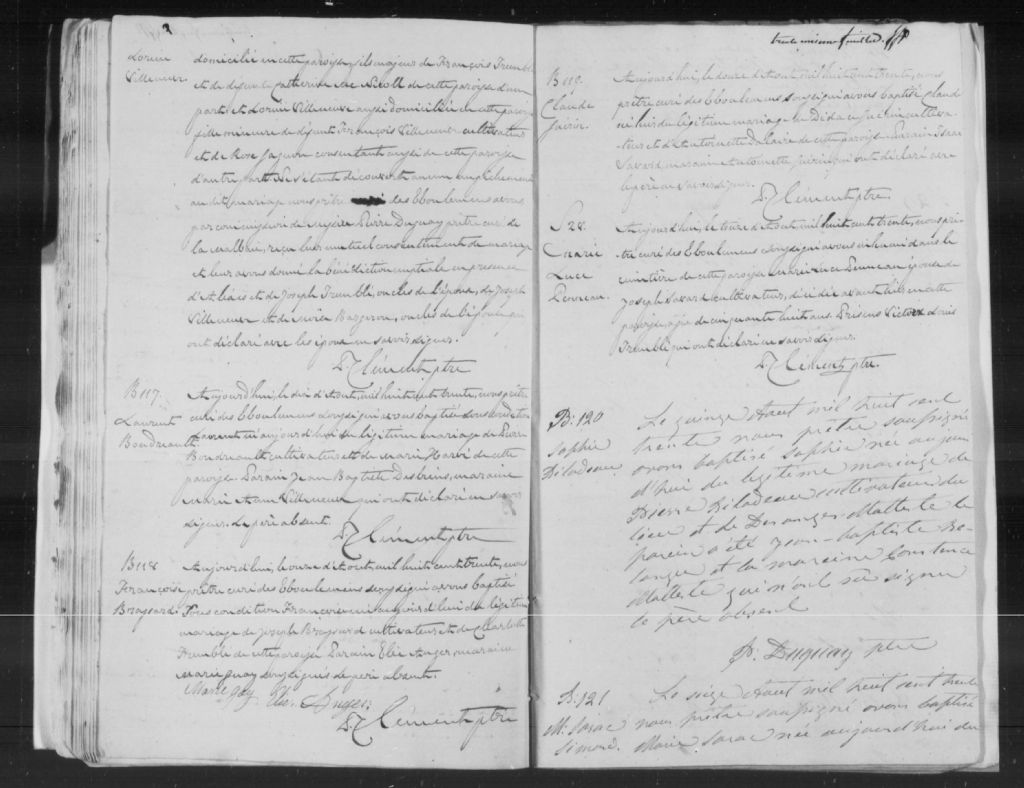 3
Lorine
Villeneuve
domicilié en cette paroisse, fils majeur de François Tremblé
et de défunte Catherine Mc Nicoll de cette paroisse d'une
part, et Lorine Villeneuve aussi domiciliée en cette paroisse
fille mineure de défunt François Villeneuve cultivateur
et de Rose Gagnon consentante aussi de cette paroisse
d'autre part. Ne s'étant découvert aucun empêchement
au dit mariage nous prêtre des Eboulemens avons
par commission de messire Pierre Duguay prêtre curé de
la Malbaie, reçu leur mutuel consentement de mariage
et leur avons donné la bénédiction nuptiale en présence
d'Alexis et de Joseph Tremblé, oncles de l'époux, de Joseph
Villeneuve et de Bergeron, oncles de l'épouse qui
ont déclaré avec les époux ne savoir signer.
Clément ptre
B 117.
Laurent
Boudreault
Aujourd'hui, le dix d'Aout, mil huit cent trente, nous prêtre
curé des Eboulemens soussigné avons baptisé sous condition
Laurent né aujourd'hui du légitime mariage de Pierre
Boudreault cultivateur et de Marie Harvé de cette
paroisse Parain Jean Baptiste Desbiens, maraine
Marie Anne Villeneuve qui ont déclaré ne savoir
signer. Le père absent.
Clément ptre
B 118
Françoise
Brassard
Aujourd'hui, le onze d'Aout, mil huit cent trente, nous
prêtre curé des Eboulemens soussigné avons baptisé
sous condition Françoise née aujourd'hui du légitime
mariage de Joseph Brassard cultivateur et de Charlotte
Tremblé de cette paroisse Parain Elie Anger maraine
Marie Guay soussignés le père absent.
Marie Gay. Elie. Anger.
Clément ptre
feuillet
B 119.
Claude
Guérin.
Aujourd'hui, le douze d'Aout mil huit cent trente, nous
prêtre curé des Eboulemens soussigné avons baptisé Claude
né hier du légitime mariage de Guérin cultiva-
teur et d'Antoinette Dalaire de cette paroisse Parain Isaac
Savard, maraine Antoinette Guérin qui ont déclaré avec
le père ne savoir signer.
Clément ptre.
S 28.
Marie
Luce
Perreau.
Aujourd'hui, le treize d'Aout, mil huit cent trente, nous prê-
tre curé des Eboulemens soussigné avons inhumé dans le
cimetière de cette paroisse Marie Luce Perreau épouse de
Joseph Savard cultivateur, décédée avant hier en cette
paroisse âgée de cinquante huit ans. Présens Victor et Louis
Tremblé qui ont déclaré ne savoir signer.
Clément ptre.
B. 120
Sophie
Biladeau
Le quinze Aout mil huit cent
trente nous prêtre soussigné
avons baptisé Sophie née aujour
d'hui du légitime mariage de
Pierre Biladeau cultivateur du
lieu et de Desanges Malteste le
parein a été Jean-Baptiste Be-
langer et la mareine Constence
Malteste qui n'ont sçu signer
le père absent
P. Duguay ptre
B. 121
M. Sarac
Simard.
Le seize Aout mil huit cent trente
nous prêtre soussigné avons baptisé
Marie Sarac née aujourd'hui du